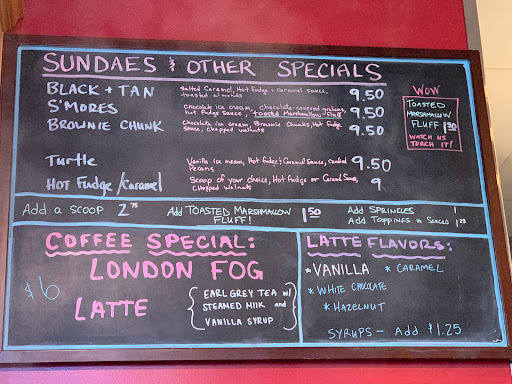 SUNDAES & OTHER SPECIALS
BLACK + TAN Salted Caramel, Hot Fudge + Caramel Sauce, toasted almonds 9.50
S'MORES Chocolate ice cream, chocolate-covered grahams, hot fudge sauce, toasted Marshmallow Fluff 9.50
BROWNIE CHUNK Chocolate ice cream, Brownie Chunks, Hot Fudge Sauce, chopped walnuts 9.50
Turtle Vanilla ice cream, Hot fudge & Caramel Sauce, candied Pecans 9.50
HOT FUDGE/CARAMEL Scoop of your choice, Hot Fudge or Caramel Sauce, chopped walnuts 9
WOW
TOASTED
MARSHMALLOW
FLUFF 1.50
WATCH US
TORCH IT!
Add a SCOOP 2.75
Add TOASTED MARSHMALLOW FLUFF! 1.50
Add SPRINKLES 1
Add TOPPINGS n SAUCES 1.25
COFFEE SPECIAL:
LONDON FOG
LATTE
$6
EARL GREY TEA w/
STEAMED MILK and
VANILLA SYRUP
LATTE FLAVORS:
*VANILLA * CARAMEL
* WHITE CHOCOLATE
* HAZELNUT
SYRUPS - Add $1.25